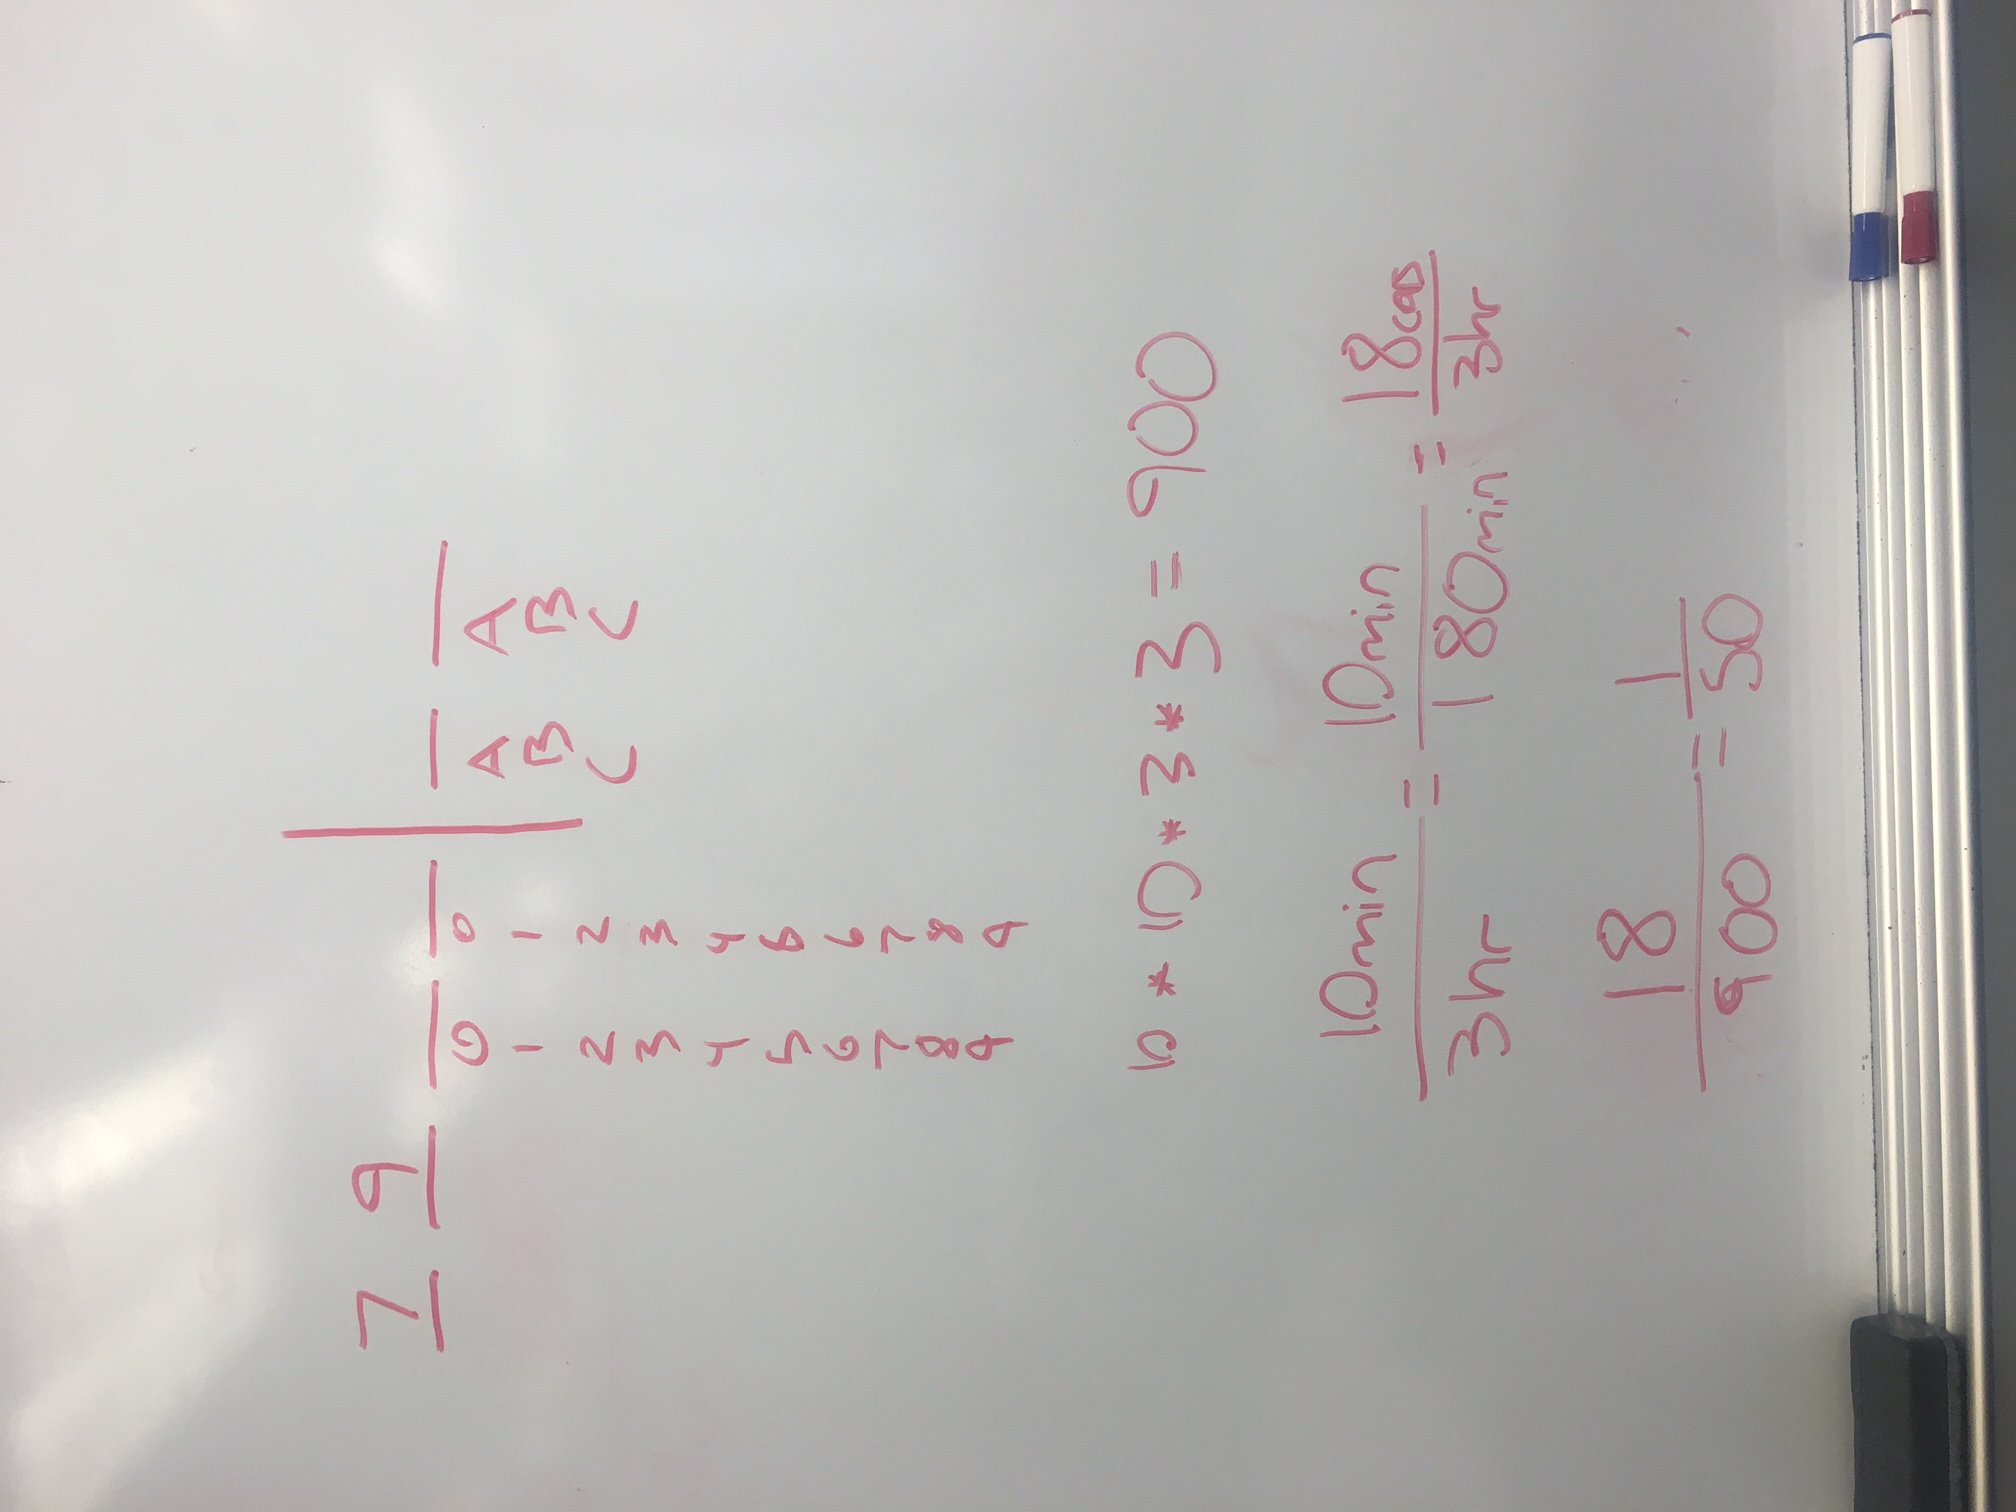 7 9
0 0 A A
1 1 B B
2 2 C C
3 3
4 4
5 5
6 6
7 7
8 8
9 9
10 * 10 * 3 * 3 = 900
10min / 3hr = 10min / 180min = 18 / 3hr
18 / 900 = 1 / 50